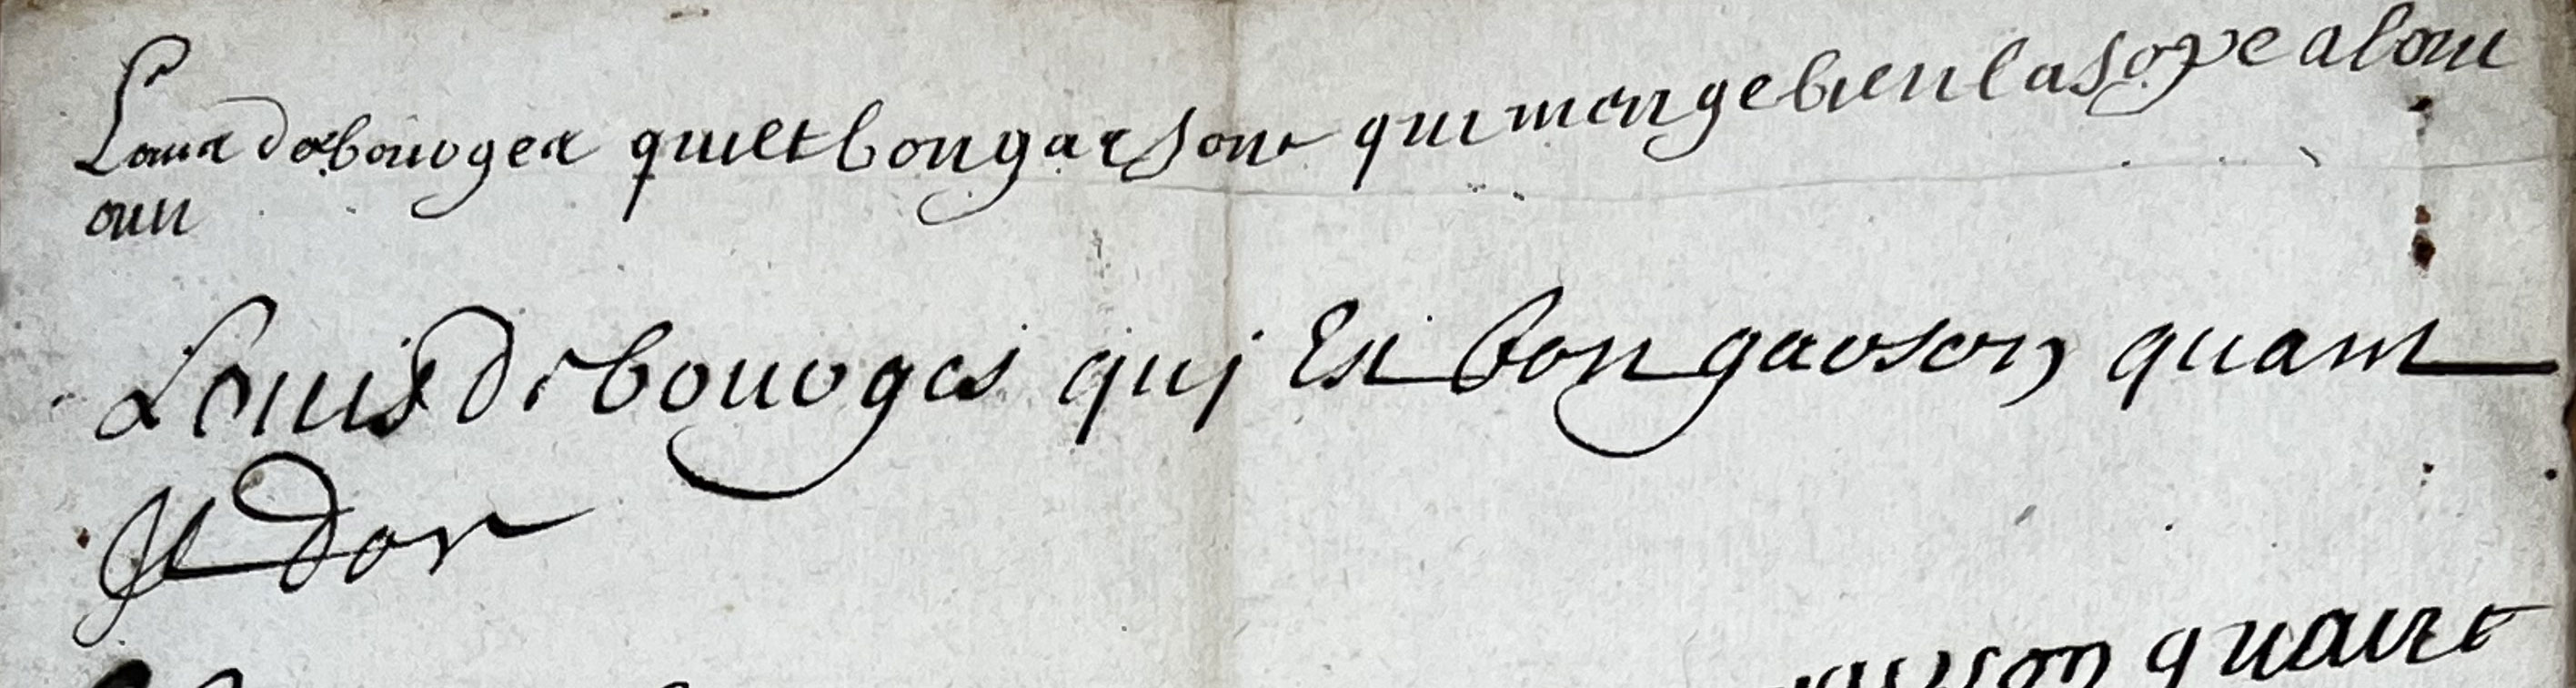 Louis desbouoges qui et bon garson qui menge bien la sope a lou
oun
Louis Desbouoges quj Est bon garson quant
Jl Dor
garson quant